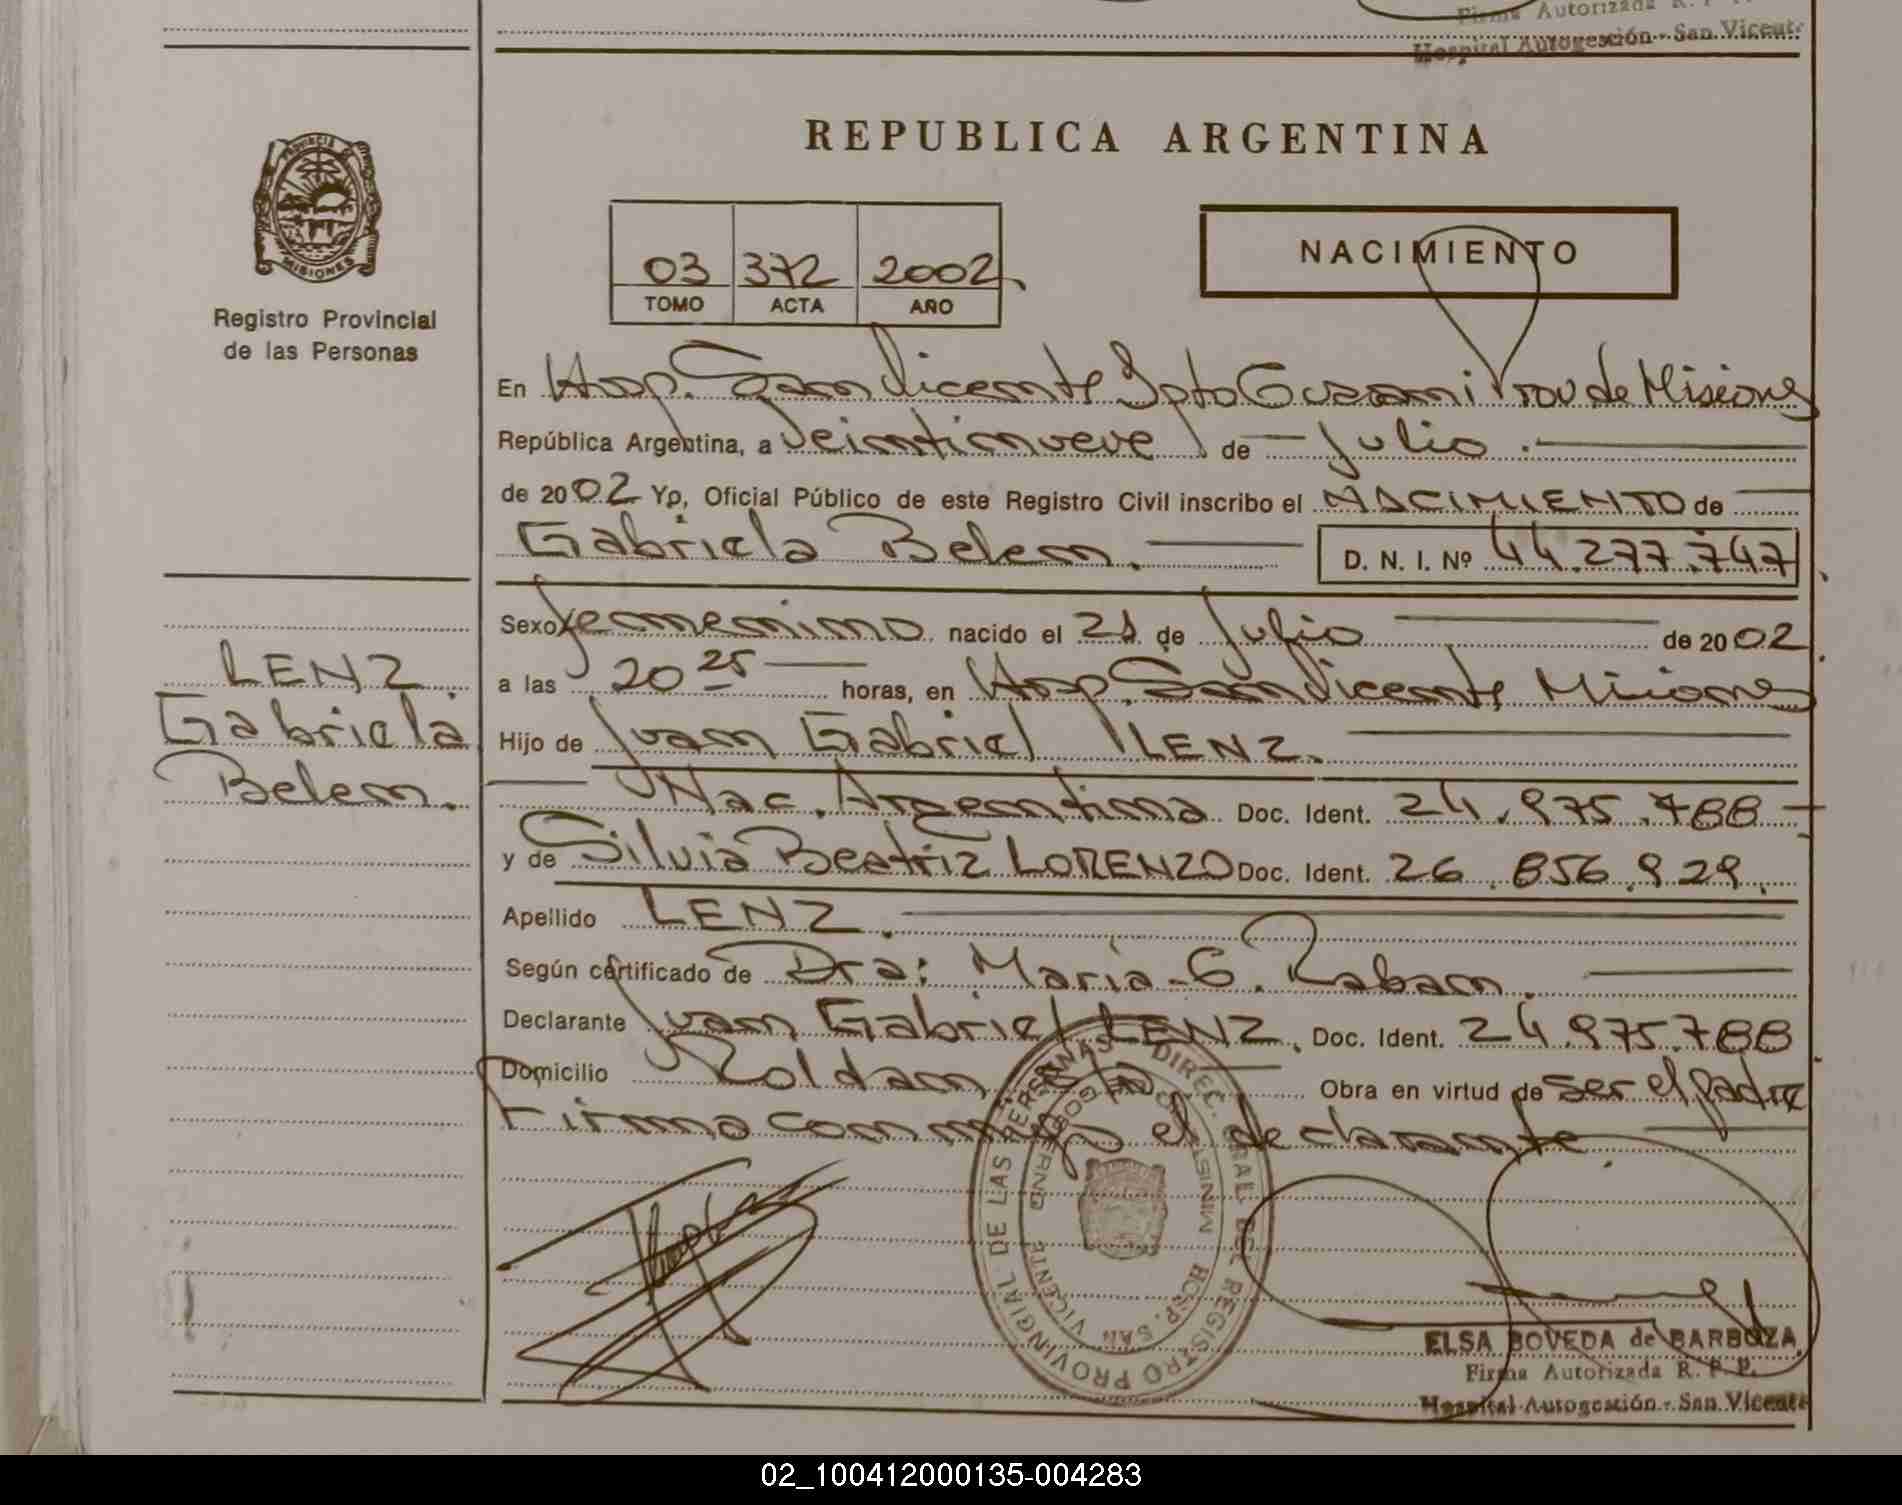 Firma Autorizada R. P. P.
Hospital Autogestión - San Vicente
REPUBLICA ARGENTINA
PROVINCIA DE
MISIONES
Registro Provincial
de las Personas
03 372 2002
TOMO ACTA AÑO
NACIMIENTO
En Hosp. San Vicente Dpto Guarani Prov de Misiones
República Argentina, a veintinueve de Julio
de 2002 Yo, Oficial Público de este Registro Civil inscribo el NACIMIENTO de
Gabriela Belem. D. N. I. Nº 44.277.747
Sexo femenino nacido el 21 de Julio de 2002
a las 20 25 horas, en Hosp. San Vicente, Misiones
Hijo de Juan Gabriel LENZ.
Nac. Argentina Doc. Ident. 24.975.788
y de Silvia Beatriz LORENZO Doc. Ident. 26.856.929.
Apellido LENZ.
Según certificado de Dra: María G. Raban.
Declarante Juan Gabriel LENZ. Doc. Ident. 24.975.788
Domicilio Roldan, Obra en virtud de ser el padre
Firma conmigo el declarante
LENZ
Gabriela
Belem.
DIREC. GRAL DEL REGISTRO PROVINCIAL DE LAS PERSONAS
MINIST. GOBIERNO HOSP. SAN VICENTE
ELSA BOVEDA de BARBOZA
Firma Autorizada R. P. P.
Hospital Autogestión - San Vicente
02_100412000135-004283